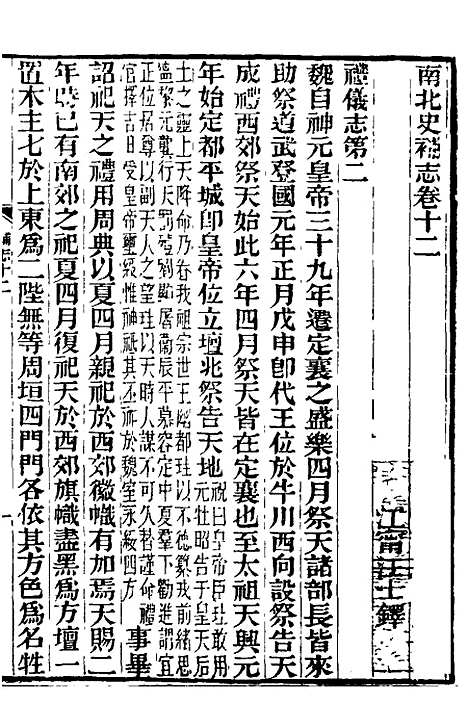 南北史補志卷十二
江甯汪士鐸
禮儀志第二
魏自神元皇帝三十九年遷定襄之盛樂四月祭天諸部長皆來
助祭道武登國元年正月戊申卽代王位於牛川西向設祭告天
成禮西郊祭天始此六年四月祭天皆在定襄也至太祖天興元
年始定都平城卽皇帝位立壇兆祭告天地祝曰皇帝臣珪敢用元牡昭告于皇天后
土之靈上天降命乃眷我祖宗世王幽都珪以不德纂戎前緒思
甯黎元龔行天罰殪劉顯屠衞辰平慕容定中夏羣下勸進謂宜
正位居尊以副天人之望珪以天時人謀不可久替謹命禮
官擇吉日受皇帝璽綬惟神祇其丕祚於魏室永綏四方事畢
詔祀天之禮用周典以夏四月親祀於西郊徽幟有加焉天賜二
年時已有南郊之祀夏四月復祀天於西郊旗幟盡黑爲方壇一
置木主七於上東爲二陛無等周垣四門門各依其方色爲名牲
補志十二
一